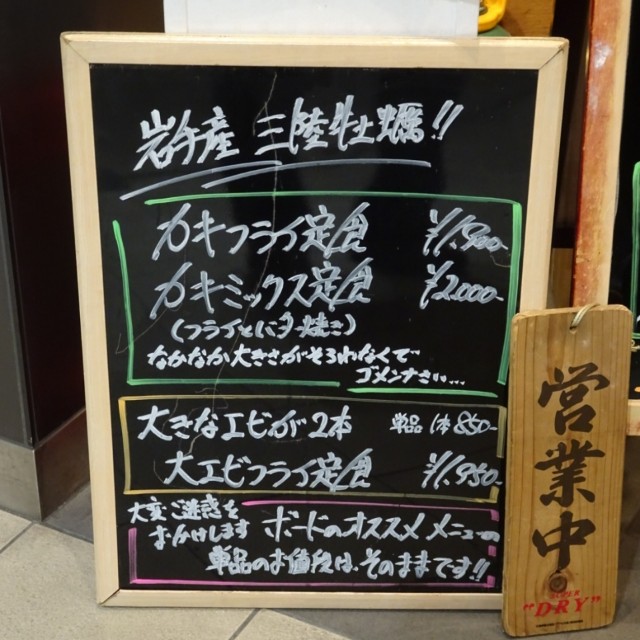 岩手産 三陸牡蠣!!
カキフライ定食 ¥1,900-
カキミックス定食 ¥2,000-
(フライとバタ焼き)
なかなか大きさがそろわなくて
ゴメンナさい...
大きなエビが2本 単品 1本850-
大エビフライ定食 ¥1,950-
大変ご迷惑を
おかけします
ボードのオススメメニューの
単品のお値段は、そのままです!!
営業中
"DRY"